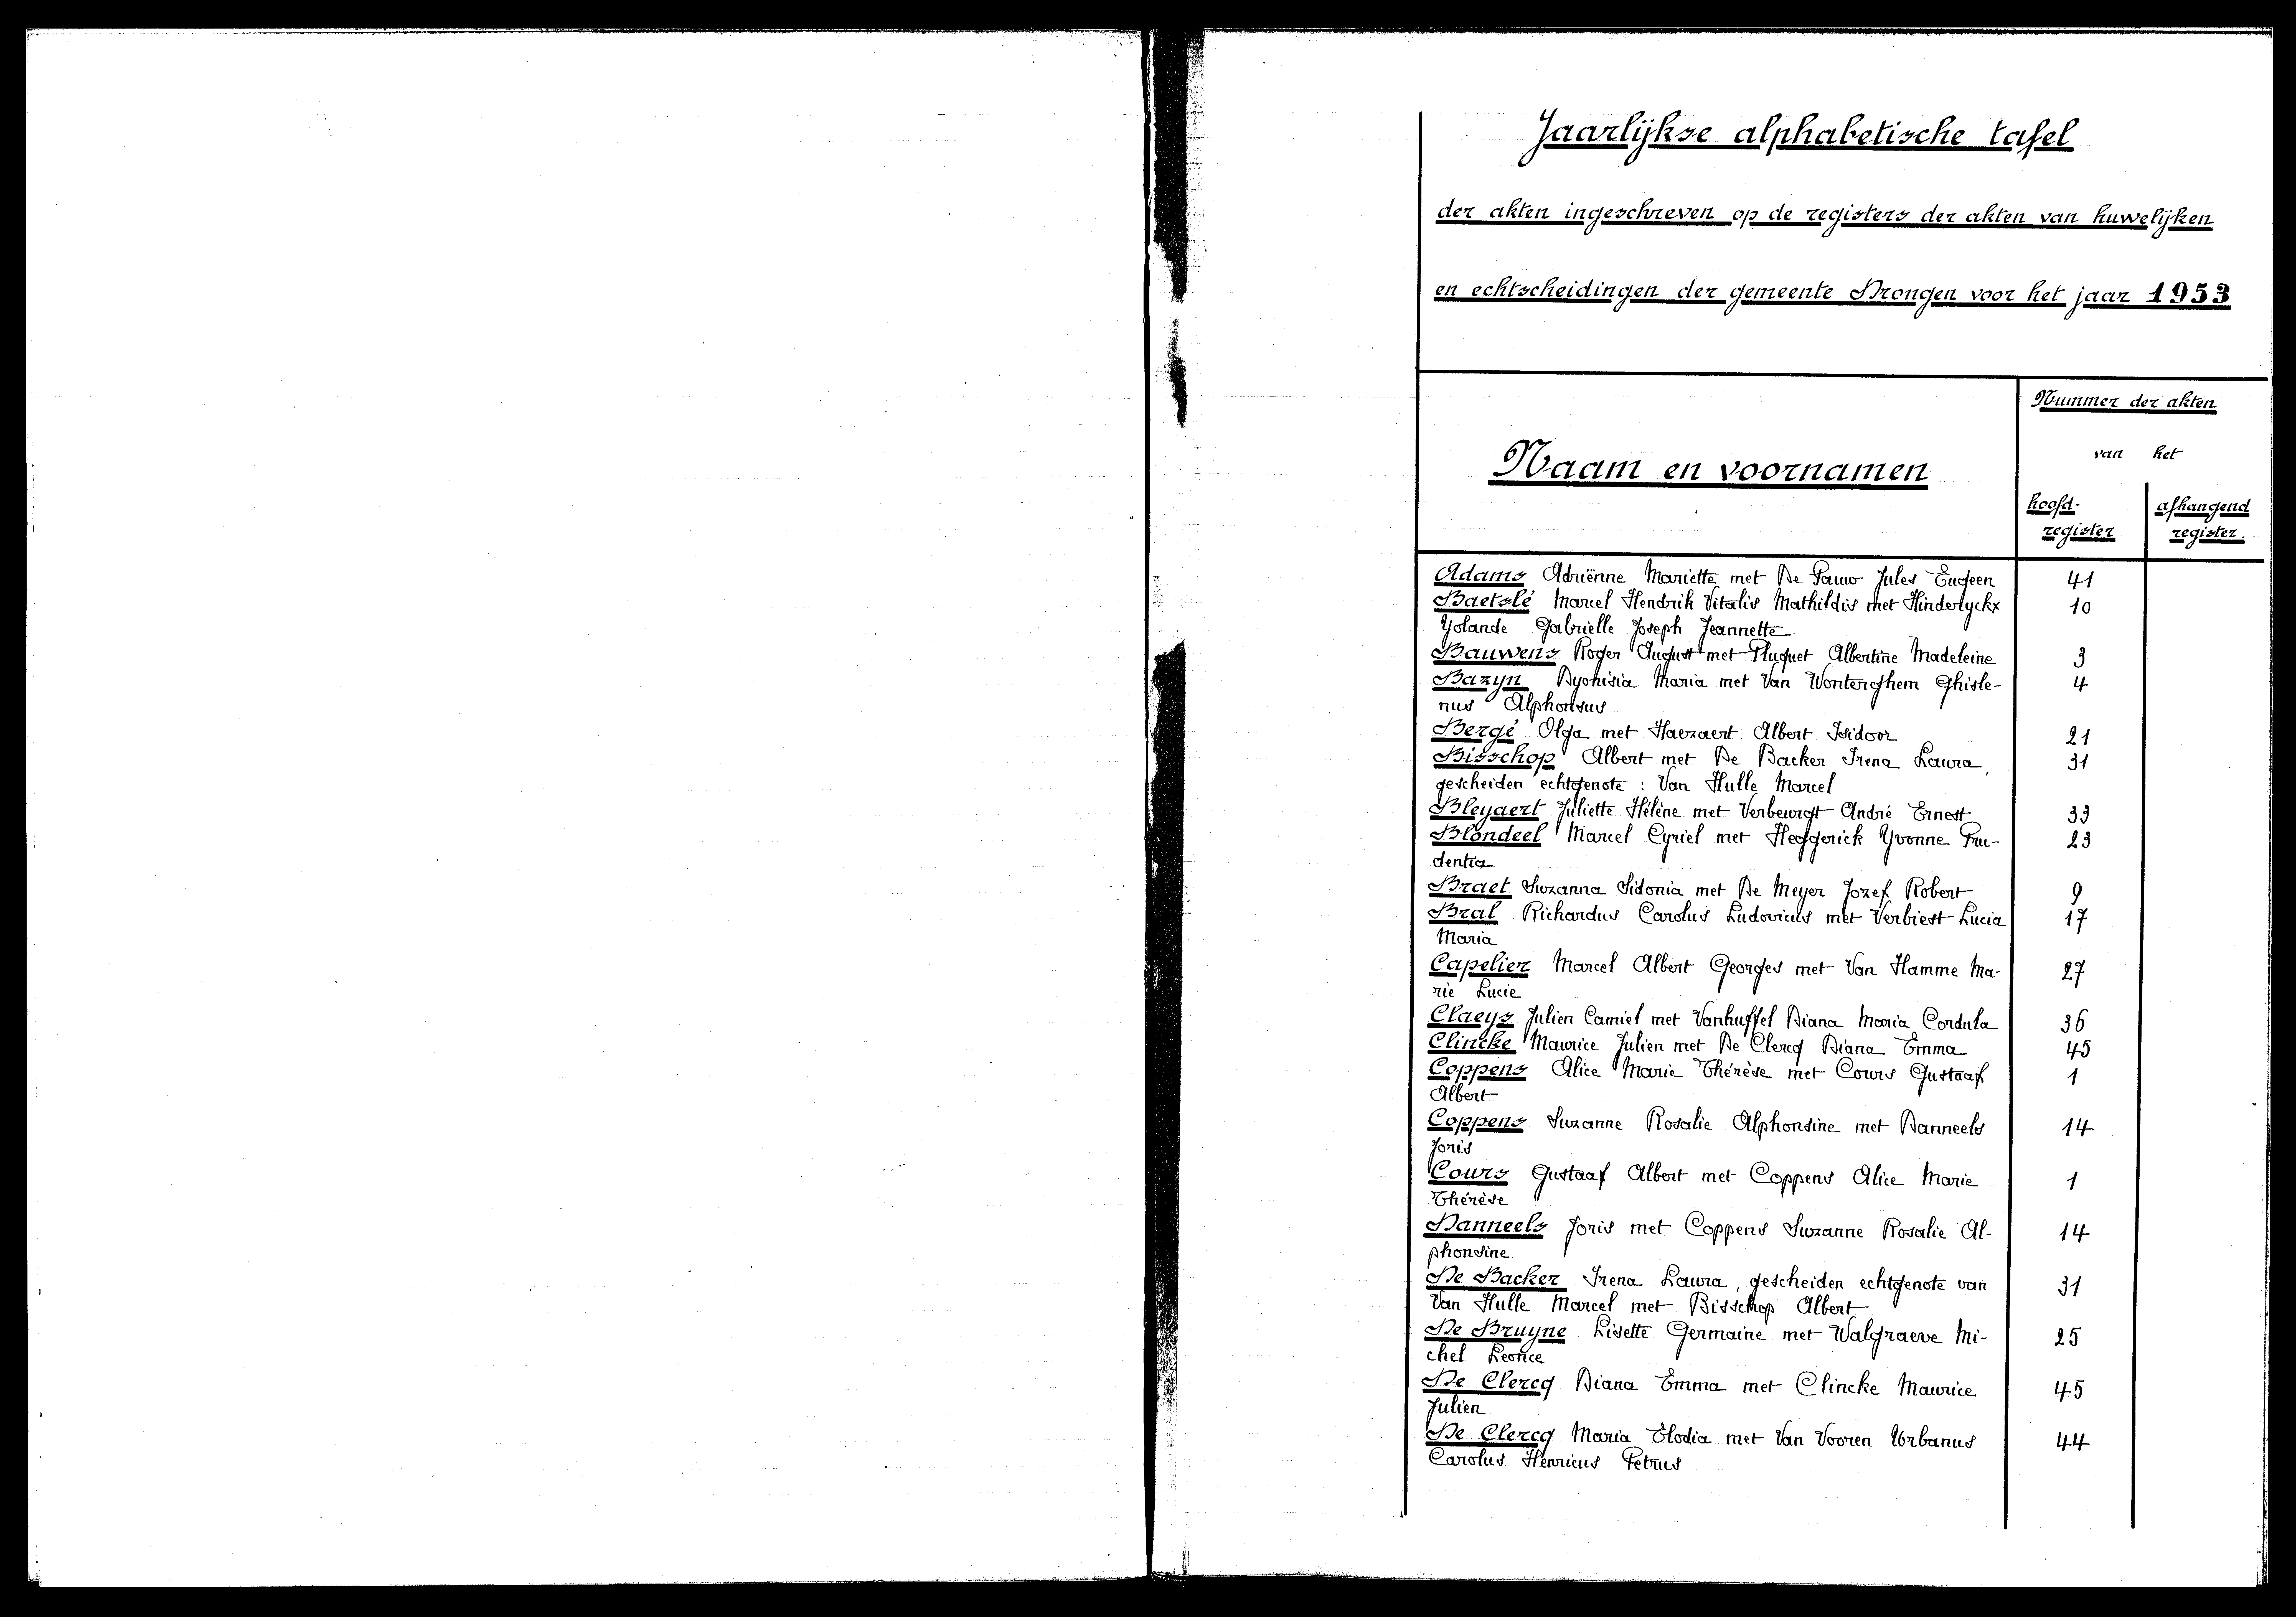 Jaarlijkse alphabetische tafel
der akten ingeschreven op de registers der akten van huwelijken
en echtscheidingen der gemeente Drongen voor het jaar 1953
Nummer der akten
van het
Naam en voornamen
hoofd-
register
afhangend
register.
Adams Adriënne Mariette met De Pauw Jules Eugeen 41
Baetslé Marcel Hendrik Vitalis Mathildis met Hinderyckx 10
Yolande Gabrielle Joseph Jeannette
Bauwens Roger August met Pluquet Albertine Madeleine 3
Bazyn Dyonisia Maria met Van Wonterghem Ghisle- 4
nus Alphonsus
Bergé Olga met Haezaert Albert Isidoor 21
Bisschop Albert met De Backer Irena Laura, 31
gescheiden echtgenote : Van Hulle Marcel
Bleyaert Juliette Hélène met Verbeurgt André Ernest 33
Blondeel Marcel Cyriel met Heggerick Yvonne Pru- 23
dentia
Braet Suzanna Sidonia met De Meyer Jozef Robert 9
Bral Richardus Carolus Ludovicus met Verbiest Lucia 17
Maria
Capelier Marcel Albert Georges met Van Hamme Ma- 27
rie Lucie
Claeys Julien Camiel met Vanhuffel Diana Maria Cordula 36
Clincke Maurice Julien met De Clercq Diana Emma 45
Coppens Alice Marie Thérèse met Cours Gustaaf 1
Albert
Coppens Suzanne Rosalie Alphonsine met Danneels 14
Joris
Cours Gustaaf Albert met Coppens Alice Marie 1
Thérèse
Danneels Joris met Coppens Suzanne Rosalie Al- 14
phonsine
De Backer Irena Laura, gescheiden echtgenote van 31
Van Hulle Marcel met Bisschop Albert
De Bruyne Lisette Germaine met Walgraeve Mi- 25
chel Leonce
De Clercq Diana Emma met Clincke Maurice 45
Julien
De Clercq Maria Elodia met Van Vooren Urbanus 44
Carolus Henricus Petrus